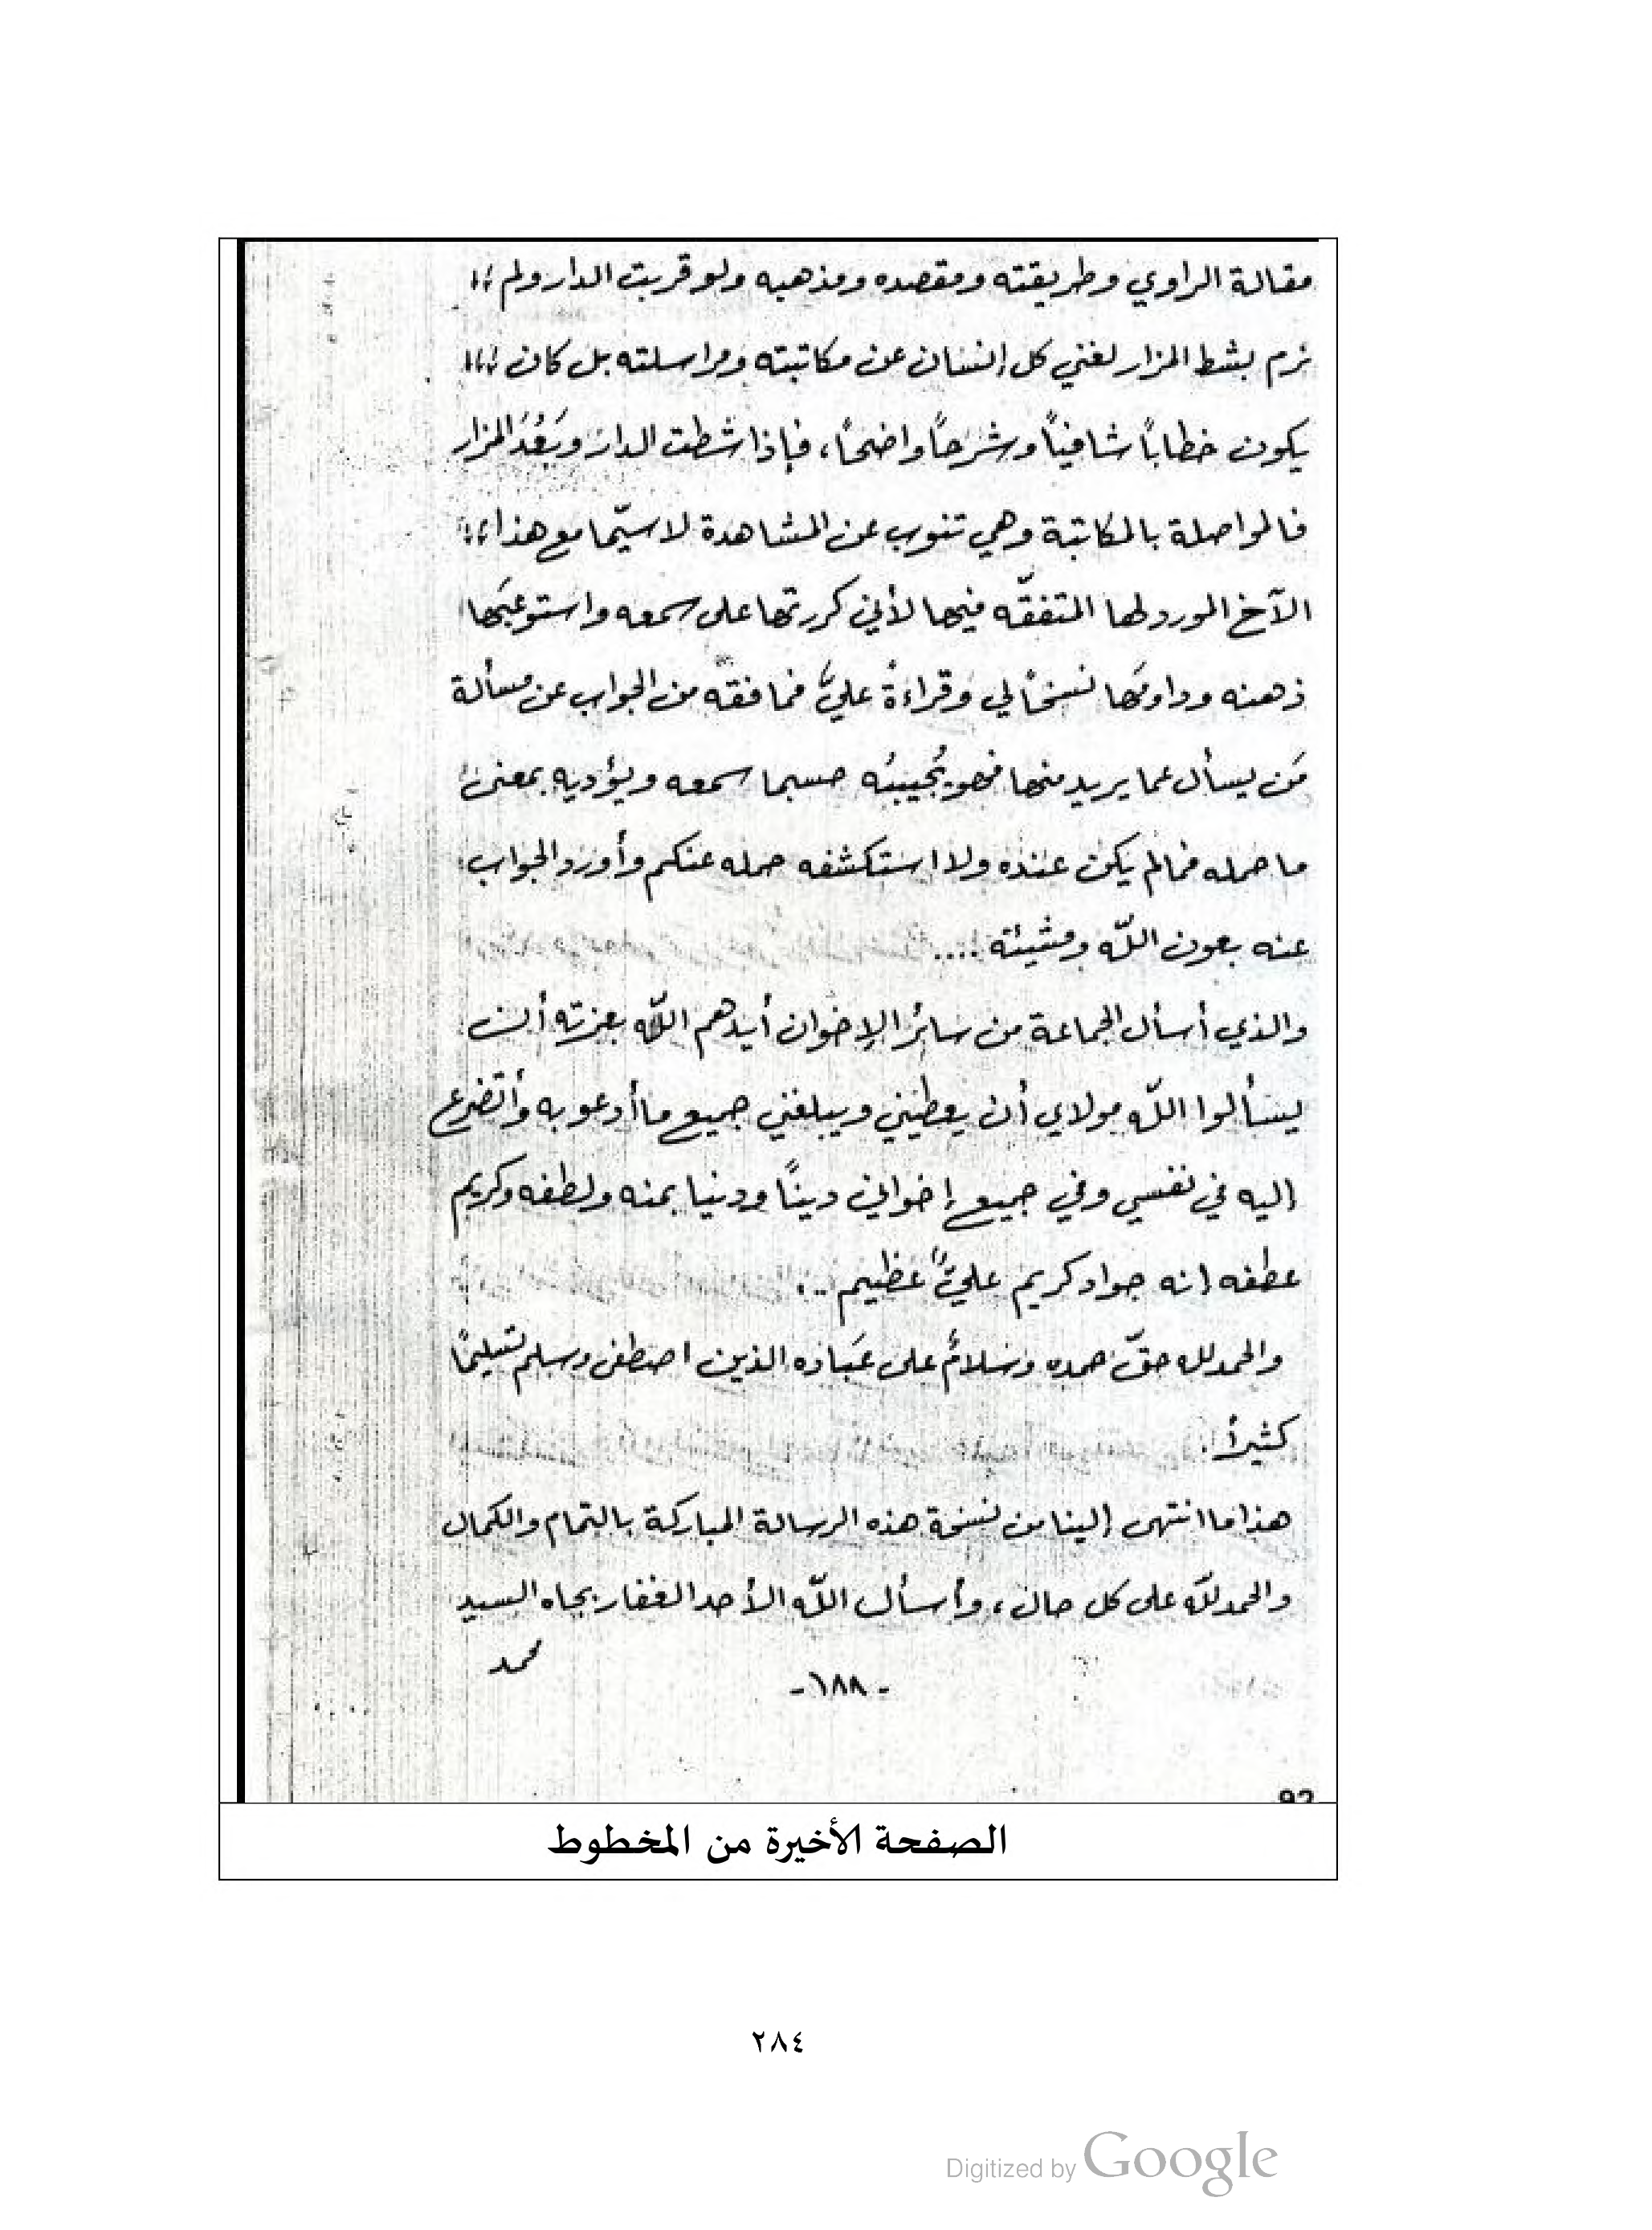 مقالة الراوي وطريقته ومقصده ومذهبه ولو قربت الدار ولم
نرم بشط المزار لغني كل إنسان عن مكاتبته ومراسلته بل كان
يكون خطاباً شافياً وشرحاً واضحاً، فإذا شطت الدار وبَعُدَ المزار
فالمواصلة بالمكاتبة وهي تنوب عن المشاهدة لا سيّما مع هذا
الآخ المورد لها المتفقّه فيها لأني كررتها على سمعه واستوعبَها
ذهنه وداومَها نسخاً لي وقراءةً عليَّ فما فقّه من الجواب عن مسألة
مَن يسأل عما يريد منها فهو يُجيبُه حسبما سمعه ويؤديه بمعنى
ما حمله فما لم يكن عنده ولا استكشفه حمله عنكم وأورد الجواب
عنه بعون اللّه ومشيئته ....
والذي أسأل الجماعة من سائر الإخوان أيدهم اللّه بعزته أن
يسألوا اللّه مولاي أن يعطيني ويبلغني جميع ما أدعو به وأتضرع
إليه في نفسي وفي جميع إخواني ديناً ودنيا بمنه ولطفه وكريم
عطفه إنه جواد كريم عليٌّ عظيم ..
والحمد لله حقّ حمده وسَلامٌ على عَباده الذين اصطفى وسلم تسليماً
كثيراً .
هذا ما انتهى إلينا من نسخة هذه الرسالة المباركة بالتمام والكمال
والحمد للّه على كل حال، وأسأل اللّه الأحد الغفار بجاه السيد
محمد
- ١٨٨ -
الصفحة الأخيرة من المخطوط
٢٨٤
Digitized by Google